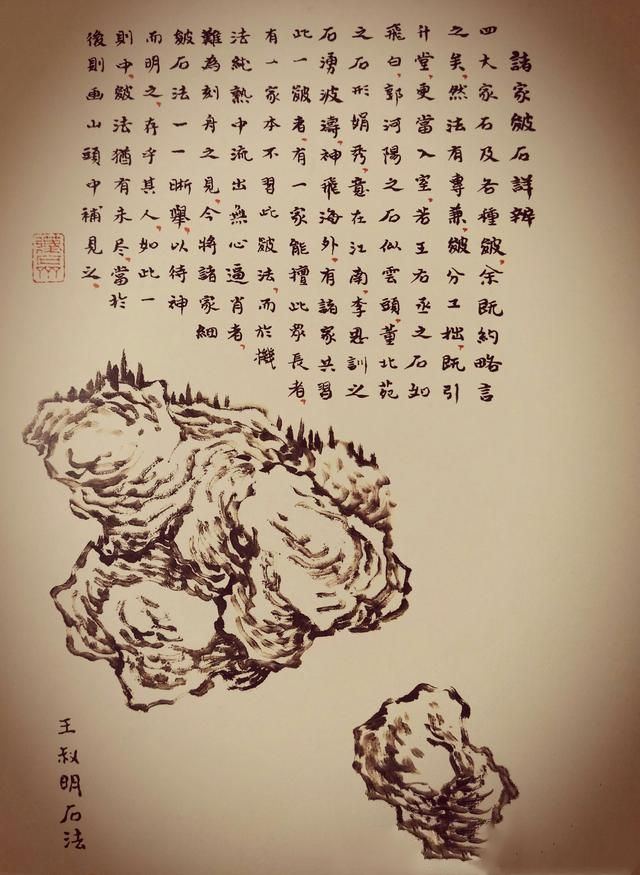 諸家皴石詳辨
四大家石及各種皴余既約略言
之矣然法有專兼皴分工拙既引
升堂更當入室若王右丞之石如
飛白郭河陽之石似雲頭董北苑
之石形娟秀意在江南李思訓之
石湧波濤神飛海外有諸家共習
此一皴者有一家能擅此眾長者
有一家本不習此皴法而於機
法純熟中流出無心逼肖者
難為刻舟之見今將諸家細
皴石法一一晰舉以待神
而明之存乎其人如此一
則中皴法猶有未尽當於
後則画山頭中補見之
王叔明石法